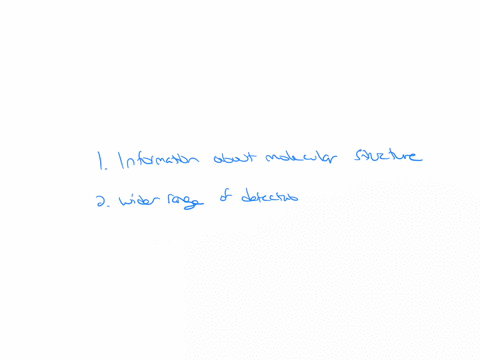 1. Information about molecular structure
2. wider range of detection